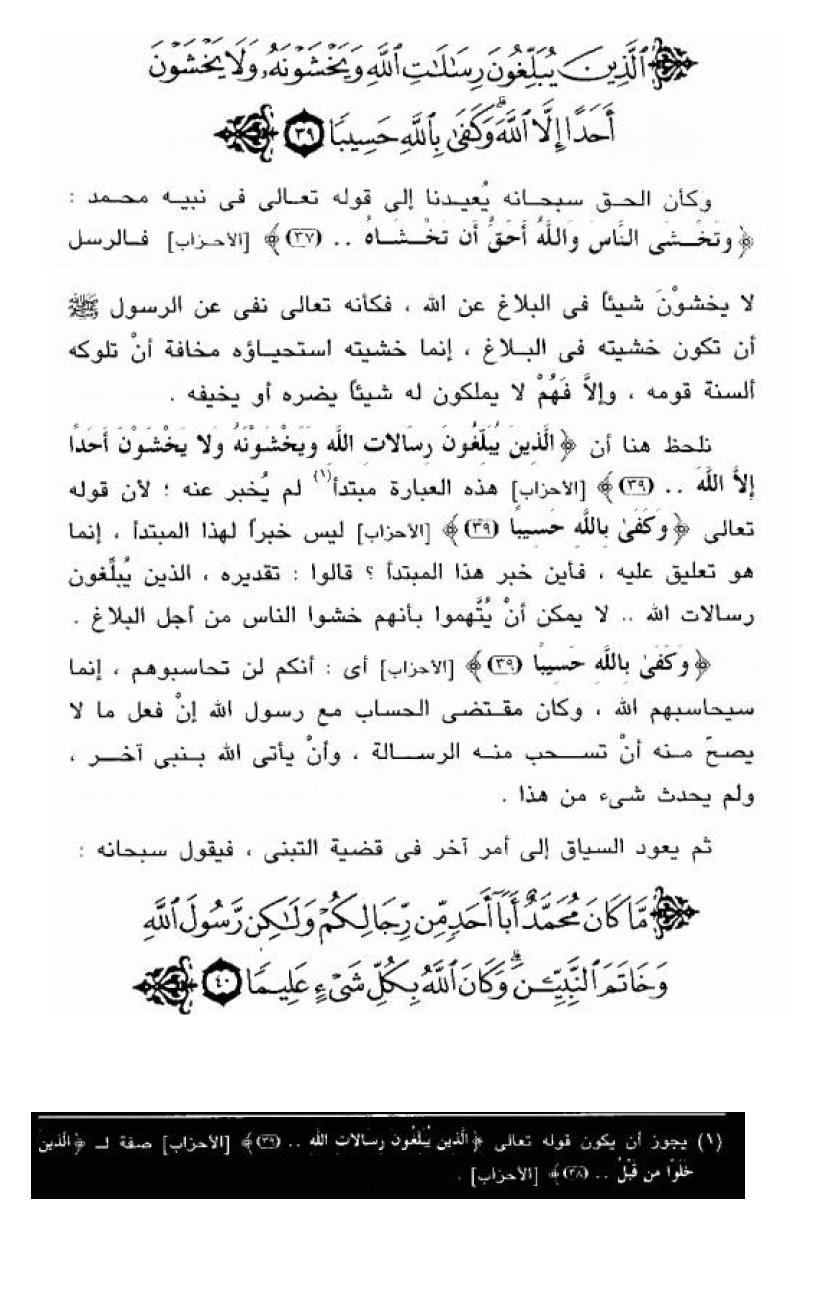 ٱلَّذِينَ يُبَلِّغُونَ رِسَٰلَٰتِ ٱللَّهِ وَيَخْشَوْنَهُۥ وَلَا يَخْشَوْنَ
أَحَدًا إِلَّا ٱللَّهَ ۗ وَكَفَىٰ بِٱللَّهِ حَسِيبًا ٣٩
وكأن الحق سبحانه يُعيدنا إلى قوله تعالى فى نبيه محمد :
﴿ وَتَخْشَى النَّاسَ وَاللَّهُ أَحَقُّ أَن تَخْشَاهُ .. (٣٧) ﴾ [الأحزاب] فالرسل
لا يخشوْنَ شيئاً فى البلاغ عن الله ، فكأنه تعالى نفى عن الرسول ﷺ
أن تكون خشيته فى البلاغ ، إنما خشيته استحياؤه مخافة أنْ تلوكه
ألسنة قومه ، وإلاَّ فَهُمْ لا يملكون له شيئاً يضره أو يخيفه .
نلحظ هنا أن ﴿ الَّذِينَ يُبَلِّغُونَ رِسَالَاتِ اللَّهِ وَيَخْشَوْنَهُ وَلَا يَخْشَوْنَ أَحَدًا
إِلاَّ اللَّهَ .. (٣٩) ﴾ [الأحزاب] هذه العبارة مبتدأ(١) لم يُخبر عنه ؛ لأن قوله
تعالى ﴿ وَكَفَىٰ بِاللَّهِ حَسِيبًا (٣٩) ﴾ [الأحزاب] ليس خبراً لهذا المبتدأ ، إنما
هو تعليق عليه ، فأين خبر هذا المبتدأ ؟ قالوا : تقديره ، الذين يُبلِّغون
رسالات الله .. لا يمكن أنْ يُتَّهموا بأنهم خشوا الناس من أجل البلاغ .
﴿ وَكَفَىٰ بِاللَّهِ حَسِيبًا (٣٩) ﴾ [الأحزاب] أى : أنكم لن تحاسبوهم ، إنما
سيحاسبهم الله ، وكان مقتضى الحساب مع رسول الله إنْ فعل ما لا
يصحّ منه أنْ تسحب منه الرسالة ، وأنْ يأتى الله بنبى آخر ،
ولم يحدث شىء من هذا .
ثم يعود السياق إلى أمر آخر فى قضية التبنى ، فيقول سبحانه :
مَّا كَانَ مُحَمَّدٌ أَبَآ أَحَدٍ مِّن رِّجَالِكُمْ وَلَٰكِن رَّسُولَ ٱللَّهِ
وَخَاتَمَ ٱلنَّبِيِّـۧنَ ۗ وَكَانَ ٱللَّهُ بِكُلِّ شَىْءٍ عَلِيمًا ٤٠
(١) يجوز أن يكون قوله تعالى ﴿ الَّذِينَ يُبَلِّغُونَ رِسَالَاتِ اللَّهِ .. (٣٩) ﴾ [الأحزاب] صفة لـ ﴿ الَّذِينَ
خَلَوْا مِن قَبْلُ .. (٣٨) ﴾ [الأحزاب] .